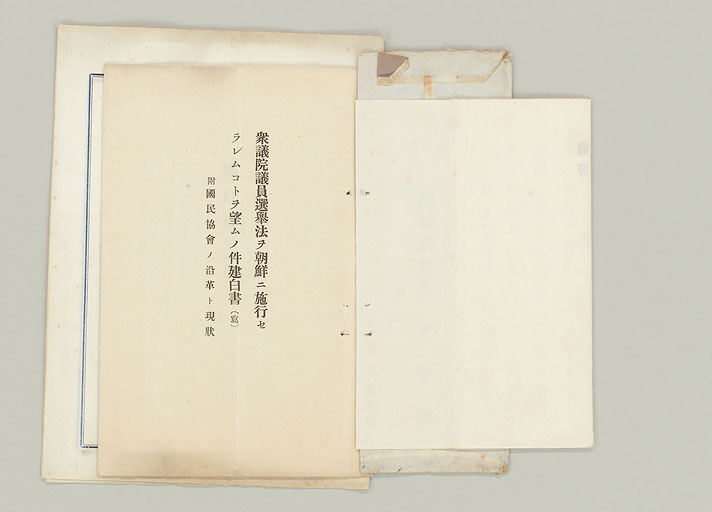 衆議院議員選擧法ヲ朝鮮ニ施行セ
ラレムコトヲ望ムノ件建白書（寫）
附國民協會ノ沿革ト現狀